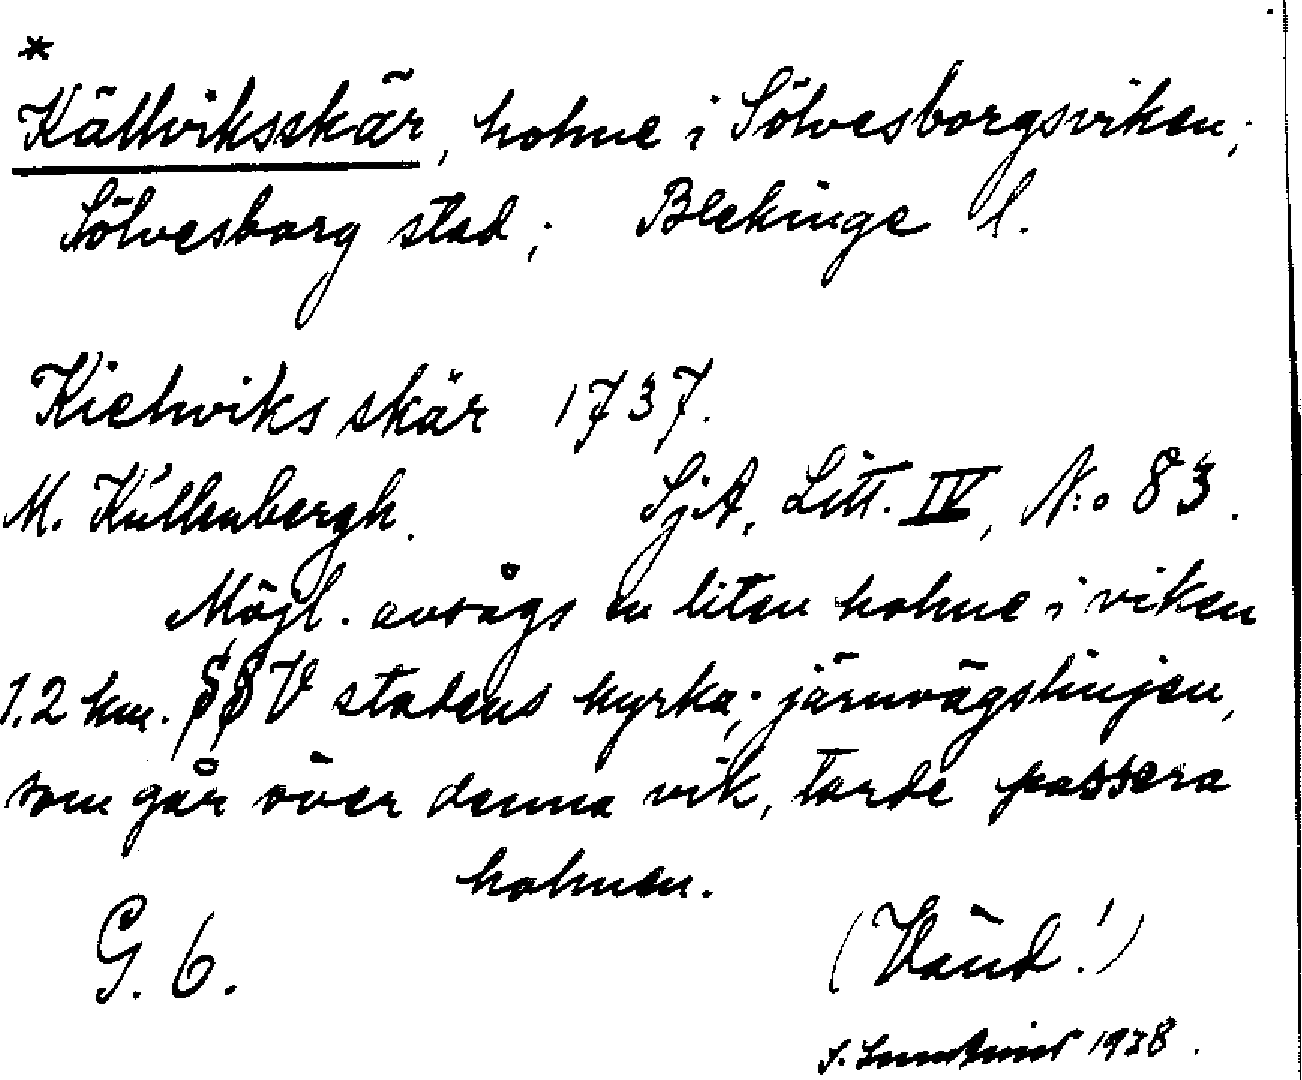 *
Källviksskär, holme i Sölvesborgsviken;
Sölvesborg stad; Blekinge l.
Kielwiks skär 1737.
M. Küllenbergh. SjA, Litt. IV, N:o 83.
Möjl. avsågs en liten holme i viken
1.2 km. SSV stadens kyrka; järnvägslinjen,
som går över denna vik, torde passera
holmen.
G. 6. (Vänd!)
S. 1938.